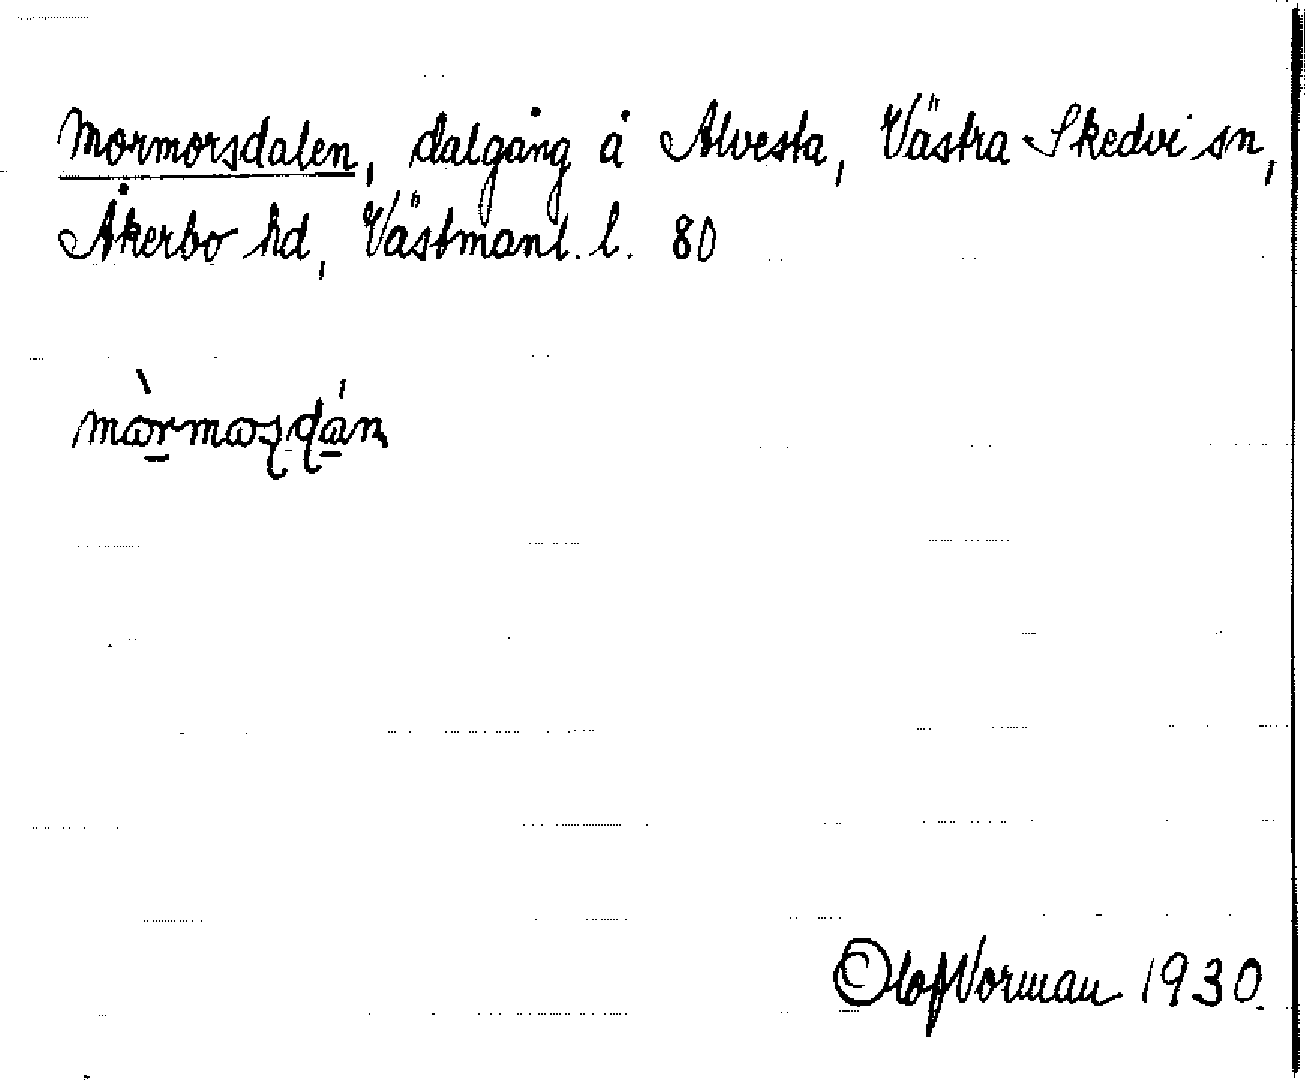 Mormorsdalen, dalgång å Alvesta, Västra Skedvi sn,
Åkerbo hd, Västmanl. l. 80
Olof Norman 1930